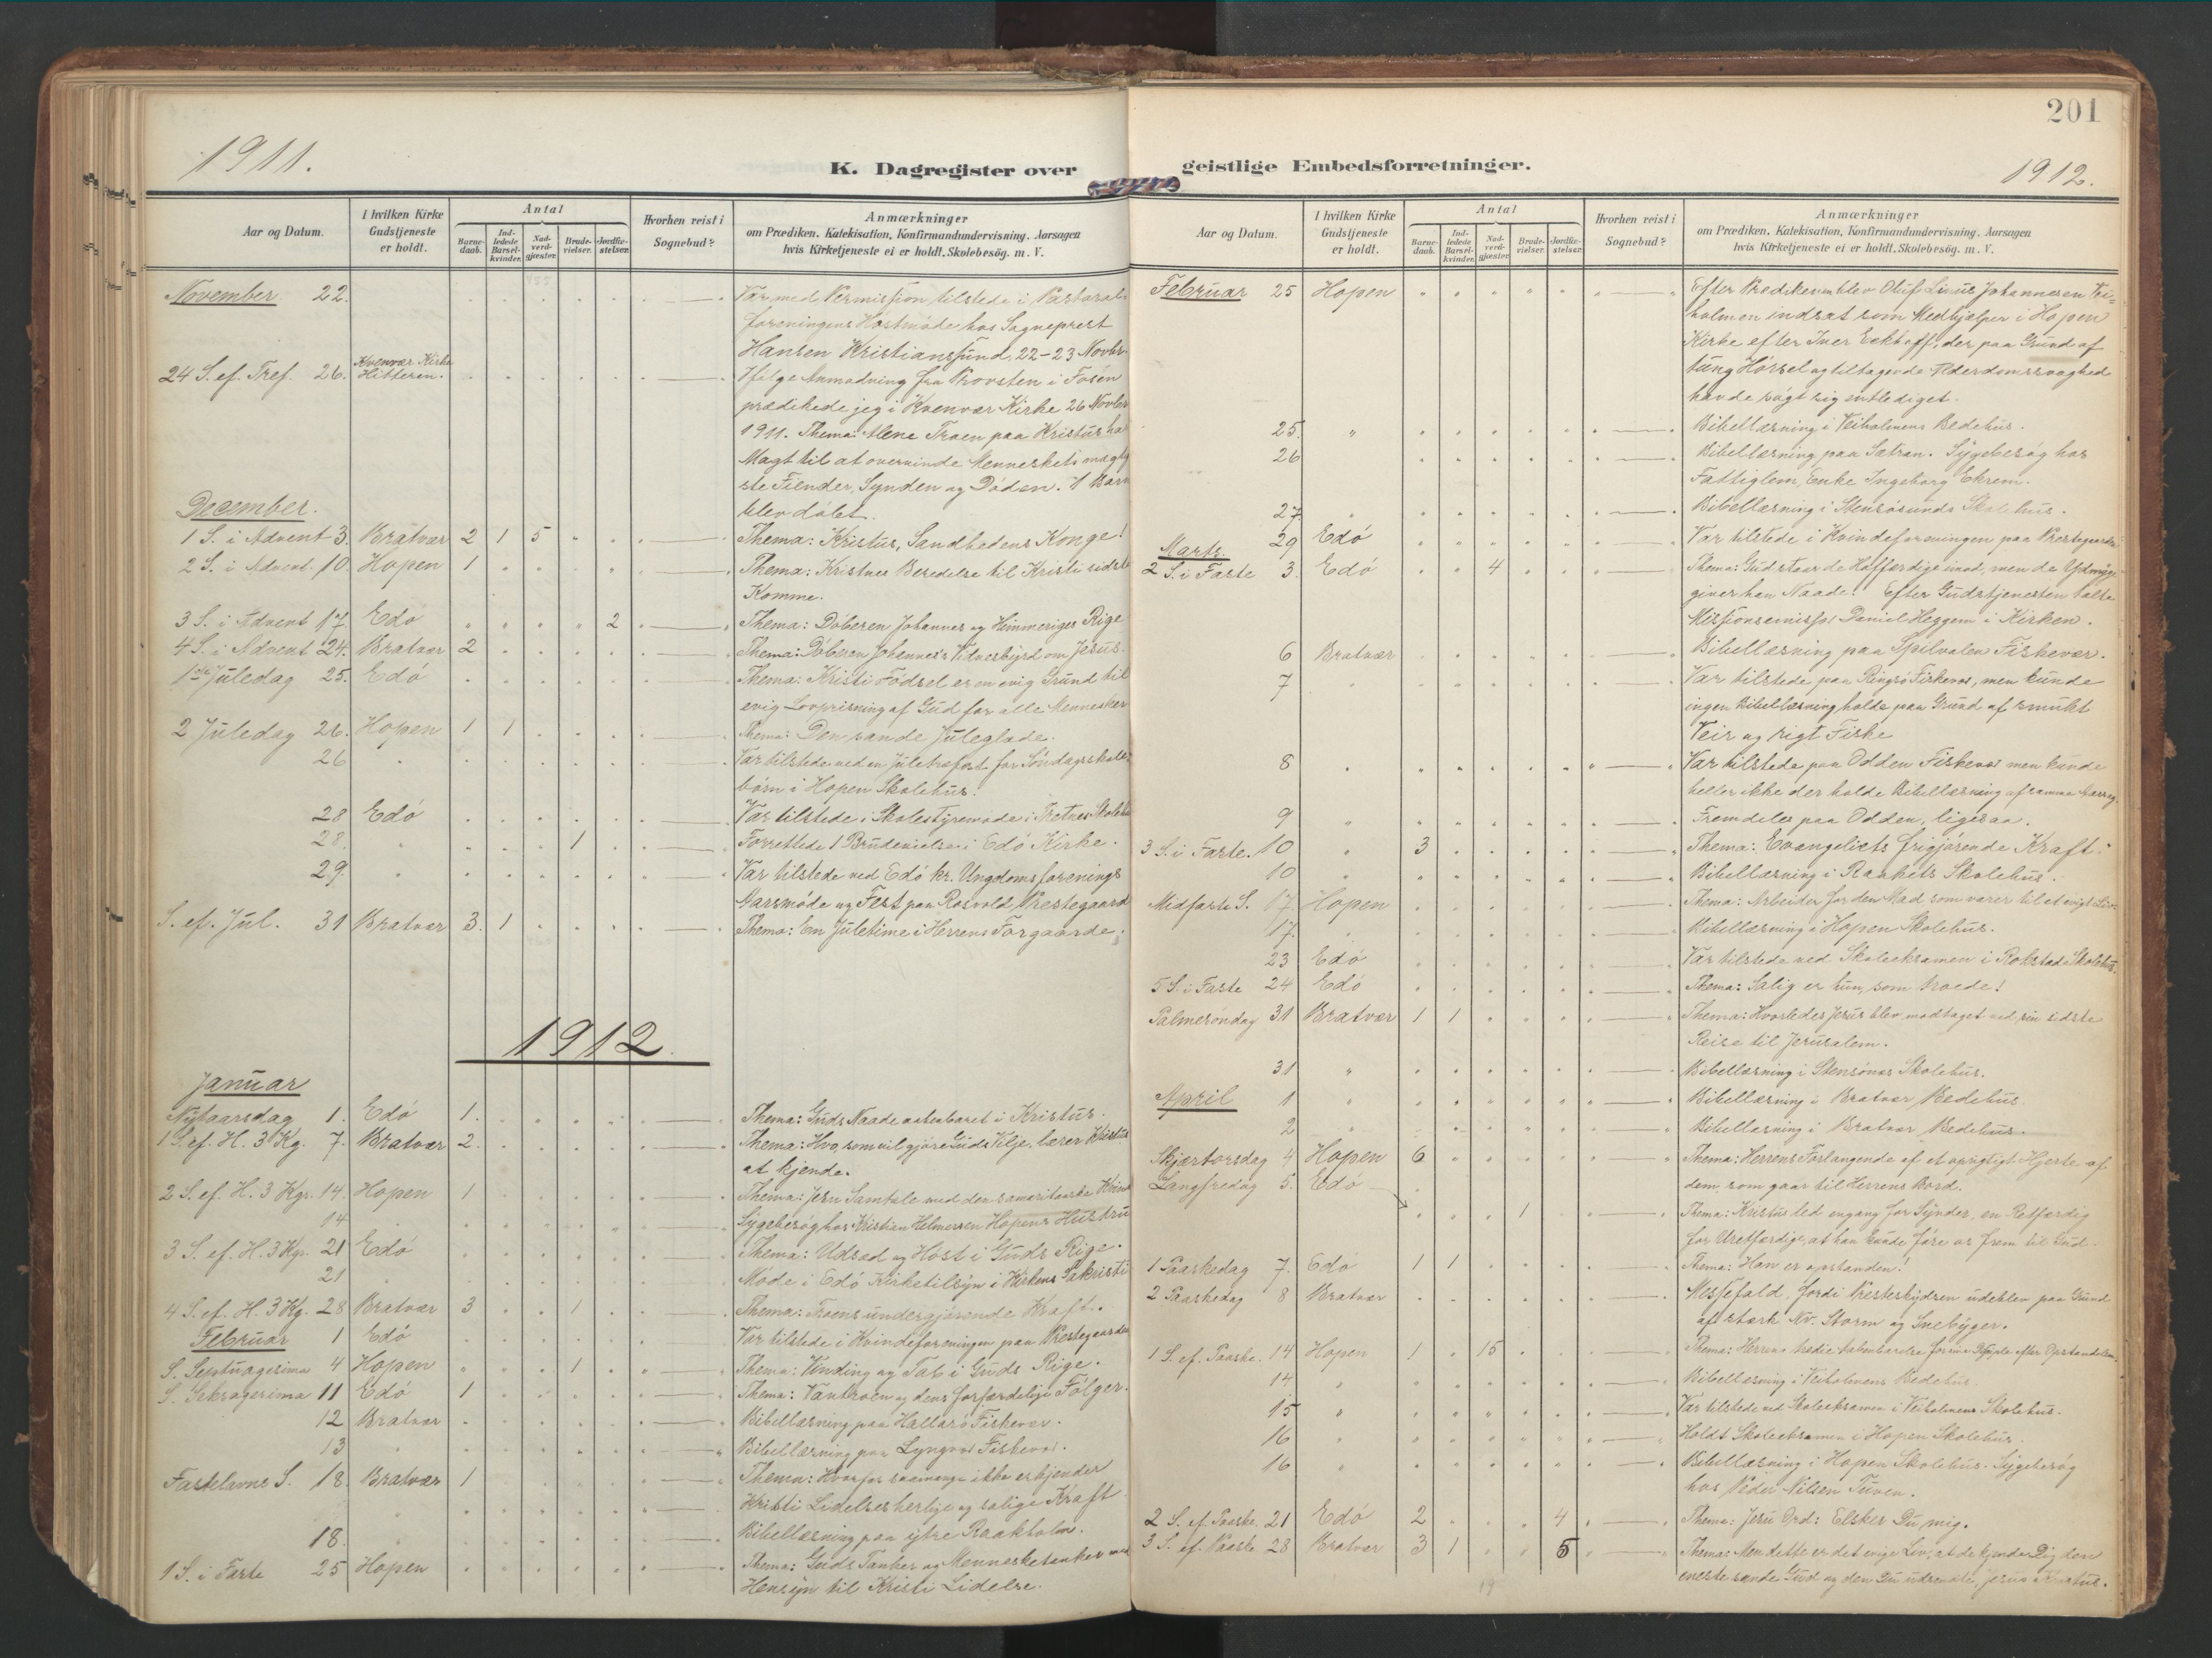 1911.
K. Dagregister over
Aar og Datum.
I hvilken Kirke Gudstjeneste er holdt.
Antal
Barne-daab.
Ind-ledede Barsel-kvinder.
Nad-verd-gjæster.
Brude-vielser.
Jordfæ-stelser.
Hvorhen reist i Sognebud?
Anmærkninger
om Prædiken, Katekisation, Konfirmandundervisning. Aarsagen
hvis Kirketjeneste ei er holdt. Skolebesøg. m. V.
November 22. Var med Permission tilstede i Pastoral-
foreningens Høstmøde hos Sogneprest
Hansen Kristianssund, 22-23 Novbr.
24 S. ef. Tref. 26. Kvenvær Kirke Hitteren. Ifølge Anmodning fra Provsten i Fosen
prædikede jeg i Kvenvær Kirke 26 Novbr
1911. Thema: Alene Troen paa Kristus ha
Magt til at overvinde Menneskets mægtig
ste Fiender, Synden og Døden. 1 Barn
blev døbt.
December.
1 S. i Advent 3. Bratvær 2 1 5 Thema: Kristus, Sandhedens Konge!
2 S. i Advent. 10. Hopen 1 Thema: Kristnes Beredelse til Kristi sidste
Komme.
3 S. i Advent 17. Edø 2 Thema: Døberen Johannes og Himmeriges Rige
4 S. i Advent 24. Bratvær 2 Thema: Døberen Johannes's Vidnesbyrd om Jesus.
1ste Juledag 25. Edø Thema: Kristi Fødsel er en evig Grund til
evig Lovprisning af Gud for alle Mennesker
2 Juledag 26. Hopen 1 1 Thema: Den sande Juleglæde.
26 Var tilstede ved en Juletræfest for Søndagsskole-
børn i Hopen Skolehus.
28 Edø Var tilstede i Skolestyremøde i
28. 1 Forrettede 1 Brudevielse i Edø Kirke.
29. Var tilstede ved Edø kr. Ungdomsforenings
Aarsmøde og Fest paa Rosvold, Prestegaard
S. ef. Jul. 31 Bratvær 3. 1 Thema: En Juletime i Herrens Forgaarde.
1912.
Januar
Nytaarsdag 1. Edø 1. Thema: Guds Naade aabenbaret i Kristus.
1 S. ef. H. 3 Kg. 7. Bratvær 2. Thema: Hvo, som vil gjøre Guds Vilje, lærer Kristus
at kjende.
2 S. ef. H. 3 Kgr. 14. Hopen 1 Thema: Jesu Samtale med den samaritanske Kvind
14 Sygebesøg hos Kristian Helmersen Hopens Hustru
3 S. ef. H. 3 Kgr. 21 Edø Thema: Udsæd og Høst i Guds Rige.
21 Møde i Edø Kirketilsyn i Kirkens Sakristi
4 S. ef. H. 3 Kg. 28 Bratvær 3 1 Thema: Troens undergjørende Kraft.
Februar 1 Edø Var tilstede i Kvindeforeningen paa Prestegaarden
S. Septuagesima 4 Hopen 1 Thema: Vinding og Tab i Guds Rige.
S. Seksagesima 11 Edø 1 Thema: Vantroen og dens forfærdelige Følger.
12 Bratvær Bibellæsning paa Hallarø Fiskevær.
13 Bibellæsning paa Lyngvær Fiskevær.
Fastelavns S. 18. Bratvær 1 Thema: Hvorfor saamange ikke erkjender
Kristi Lidelses herlige og salige Kraft
18. Bibellæsning paa ytre Raakholm.
1 S. i Faste 25 Hopen Thema: Guds Tanker og Mennesketanker med
Hensyn til Kristi Lidelse.
201
geistlige Embedsforretninger.
1912.
Aar og Datum.
I hvilken Kirke Gudstjeneste er holdt.
Antal
Barne-daab.
Ind-ledede Barsel-kvinder.
Nad-verd-gjæster.
Brude-vielser.
Jordfæ-stelser.
Hvorhen reist i Sognebud?
Anmærkninger
om Prædiken, Katekisation, Konfirmandundervisning. Aarsagen
hvis Kirketjeneste ei er holdt. Skolebesøg. m. V.
Februar 25 Hopen Efter Prædikenen blev Oluf Linus Johannesen Vei-
holmen indsat som Medhjælper i Hopen
Kirke efter Iver Eckhoff, der paa Grund af
tung Hørsel og tiltagende Alderdomssvaghed
havde søgt sig entlediget.
25. Bibellæsning i Veiholmens Bedehus.
26 Bibellæsning paa Sætran. Sygebesøg hos
Fattiglem, Enke Ingeborg Ekrem.
27. Bibellæsning i Stensøsunds Skolehus.
29 Edø Var tilstede i Kvindeforeningen paa Prestegaarden
Marts.
2 S. i Faste 3. Edø 4 Thema: Gud staar de Hoffærdige imod, men de Ydmyge
giver han Naade! Efter Gudstjenesten talte
Missionsemissær Daniel Heggem i Kirken.
6 Bratvær Bibellæsning paa Spilvalen Fiskevær.
7 Var tilstede paa Ringsø Fiskevær, men kunde
ingen Bibellæsning holde paa Grund af smukt
Veir og rigt Fiske
8 Var tilstede paa Odden Fiskevær men kunde
heller ikke der holde Bibellæsning af samme Aarsag.
9 Fremdeles paa Odden, ligesaa.
3 S. i Faste. 10 3 Thema: Evangeliets frigjørende Kraft.
10 Bibellæsning i Raakets Skolehus.
Midfaste S. 17. Hopen Thema: Arbeider for den Mad som varer til et evigt Liv.
17. Bibellæsning i Hopen Skolehus.
23 Edø Var tilstede ved Skoleeksamen i Rokstad Skolehus.
5 S. i Faste 24 Edø Thema: Salig er hun, som troede!
Palmesøndag 31 Bratvær 1 1 Thema: Hvorledes Jesus blev modtaget ved sin sidste
Reise til Jerusalem.
31 Bibellæsning i Stensønes Skolehus.
April 1 Bibellæsning i Bratvær Bedehus.
2 Bibellæsning i Bratvær Bedehus.
Skjærtorsdag 4 Hopen 6 Thema: Herrens Forlangende af et oprigtigt Hjerte af
dem, som gaar til Herrens Bord.
Langfredag 5. Edø 1 Thema: Kristus led engang for Synder, en Retfærdig
for Uretfærdige, at han kunde føre os frem til Gud.
1 Paaskedag 7. Edø 1 1 Thema: Han er opstanden!
2 Paaskedag 8 Bratvær Messefald, fordi Presteskydsen udeblev paa Grund
af stærk Nv. Storm og Snebyger.
1 S. ef. Paaske. 14 Hopen 1 15 Thema: Herrens tredie Aabenbarelse for sine Disciple efter Opstandelsen.
14 Bibellæsning i Veiholmens Bedehus.
15 Var tilstede ved Skoleeksamen i Veiholmens Skolehus.
16 Holdt Skoleeksamen i Hopen Skolehus.
16 Bibellæsning i Hopen Skolehus. Sygebesøg
hos Peder Nilsen Tuven.
2 S. ef. Paaske. 21 Edø 2 4 Thema: Jesu Ord: Elsker Du mig.
3 S. ef. Paaske 28 Bratvær 3 1 5 Thema: Men dette er det evige Liv, at de kjender Dig den
eneste sande Gud og den Du udsendte, Jesus Kristus.
19